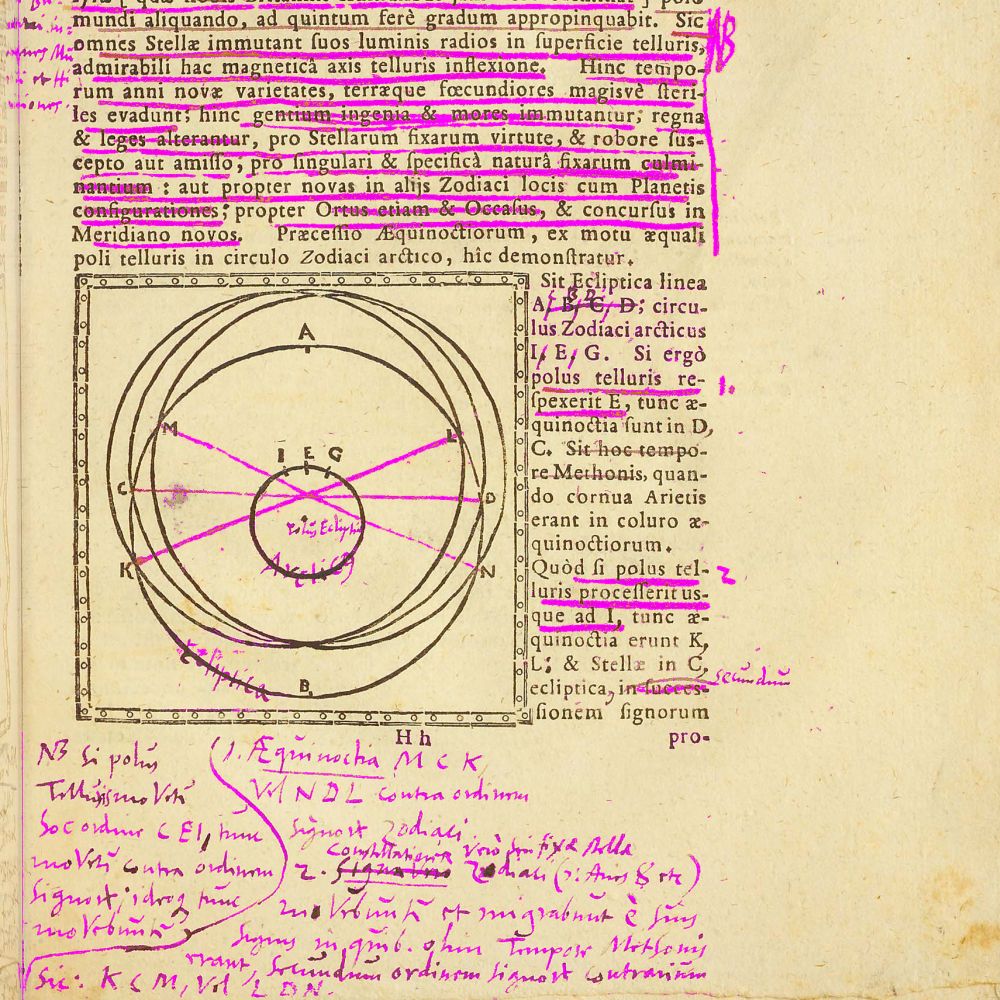 mundi aliquando, ad quintum ferè gradum appropinquabit. Sic
omnes Stellæ immutant ſuos luminis radios in ſuperficie telluris,
admirabili hac magneticâ axis telluris inflexione. Hinc tempo-
rum anni novæ varietates, terræque fœcundiores magisvè ſteri-
les evadunt; hinc gentium ingenia & mores immutantur, regna
& leges alterantur, pro Stellarum fixarum virtute, & robore ſus-
cepto aut amiſſo, pro ſingulari & ſpecificâ naturâ fixarum culmi-
nantium : aut propter novas in alijs Zodiaci locis cum Planetis
configurationes; propter Ortus etiam & Occaſus, & concurſus in
Meridiano novos. Præceſſio Æquinoctiorum, ex motu æquali
poli telluris in circulo Zodiaci arctico, hîc demonſtratur.
NB
Sit Ecliptica linea
A, B, C, D; circu-
lus Zodiaci arcticus
I, E, G. Si ergò
polus telluris re-
ſpexerit E, tunc æ-
quinoctia ſunt in D,
C. Sit hoc tempo-
re Methonis, quan-
do cornua Arietis
erant in coluro æ-
quinoctiorum.
Quòd ſi polus tel-
luris proceſſerit us-
que ad I, tunc æ-
quinoctia erunt K,
L; & Stellæ in C,
ecliptica, in ſucces-
ſionem ſignorum
1.
2
Secundum
A
M
L
I E G
C
D
polus Eclipti
K
N
Ecliptica
B
H h
pro-
NB Si polus
Telluris moVetr
hoc ordine C E I, tunc
moVetr contra ordinem
Signorum; ideoq tunc
moVebuntr
1. Æquinoctia M C K,
Vel N D L contra ordinem
Signorum Zodiaci.
Constellationes Verò seu fixæ stellæ
2. Signa Verò Zodiaci
moVebuntr et migrabunt è suis
Signis in quib. olim Tempore Methonis
erant, Secundum ordinem Signorum contrarium
Sic: K C M, Vel L D N.